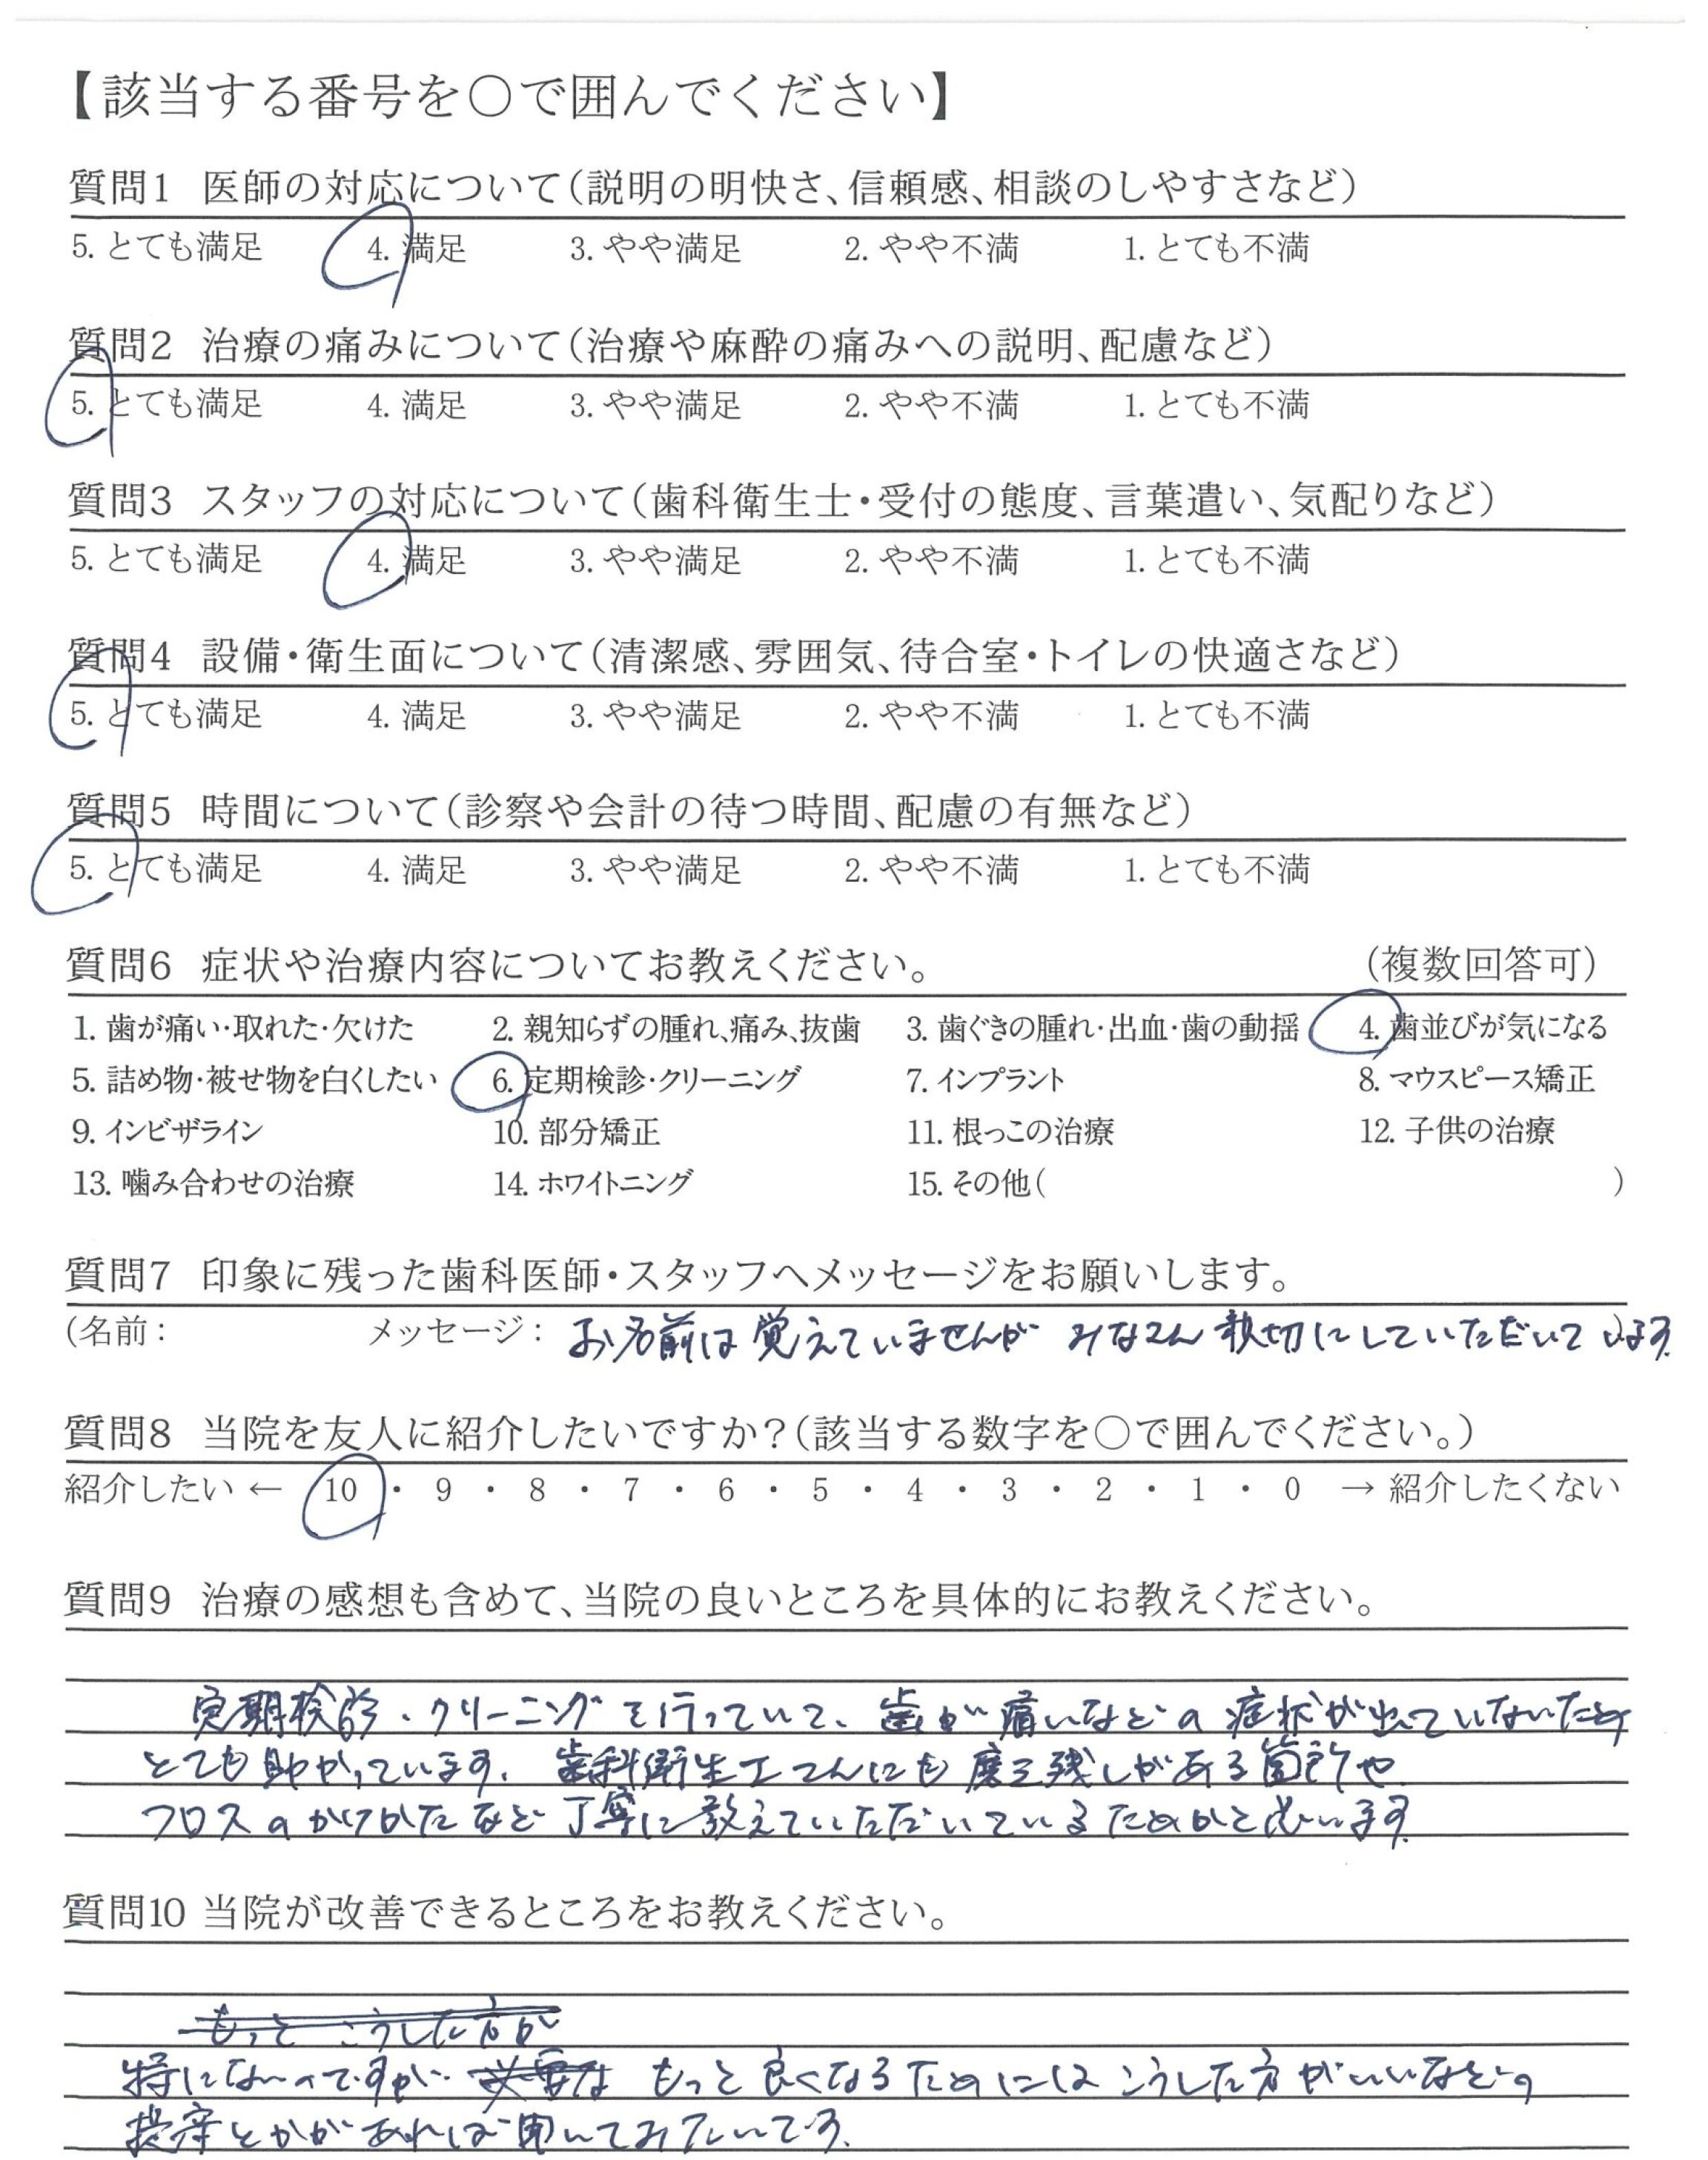 【該当する番号を○で囲んでください】
質問1 医師の対応について(説明の明快さ、信頼感、相談のしやすさなど)
5. とても満足 4. 満足 3. やや満足 2. やや不満 1. とても不満
質問2 治療の痛みについて(治療や麻酔の痛みへの説明、配慮など)
5. とても満足 4. 満足 3. やや満足 2. やや不満 1. とても不満
質問3 スタッフの対応について(歯科衛生士・受付の態度、言葉遣い、気配りなど)
5. とても満足 4. 満足 3. やや満足 2. やや不満 1. とても不満
質問4 設備・衛生面について(清潔感、雰囲気、待合室・トイレの快適さなど)
5. とても満足 4. 満足 3. やや満足 2. やや不満 1. とても不満
質問5 時間について(診察や会計の待つ時間、配慮の有無など)
5. とても満足 4. 満足 3. やや満足 2. やや不満 1. とても不満
質問6 症状や治療内容についてお教えください。 (複数回答可)
1. 歯が痛い・取れた・欠けた 2. 親知らずの腫れ、痛み、抜歯 3. 歯ぐきの腫れ・出血・歯の動揺 4. 歯並びが気になる
5. 詰め物・被せ物を白くしたい 6. 定期検診・クリーニング 7. インプラント 8. マウスピース矯正
9. インビザライン 10. 部分矯正 11. 根っこの治療 12. 子供の治療
13. 噛み合わせの治療 14. ホワイトニング 15. その他( )
質問7 印象に残った歯科医師・スタッフへメッセージをお願いします。
(名前： メッセージ： お名前は覚えていませんが みなさん 親切にしていただいています。
質問8 当院を友人に紹介したいですか?(該当する数字を○で囲んでください。)
紹介したい ← 10 ・ 9 ・ 8 ・ 7 ・ 6 ・ 5 ・ 4 ・ 3 ・ 2 ・ 1 ・ 0 → 紹介したくない
質問9 治療の感想も含めて、当院の良いところを具体的にお教えください。
定期検診・クリーニングを行っていて、歯が痛いなどの症状が出ていないため
とても助かっています。歯科衛生士さんにも磨き残しがある箇所や
フロスのかけかたなど丁寧に教えていただいているためかと思います。
質問10 当院が改善できるところをお教えください。
もっと こうした方が
特にないのですが 必要な もっと良くなるためにはこうした方がいいなどの
提案とかがあれば聞いてみたいです。